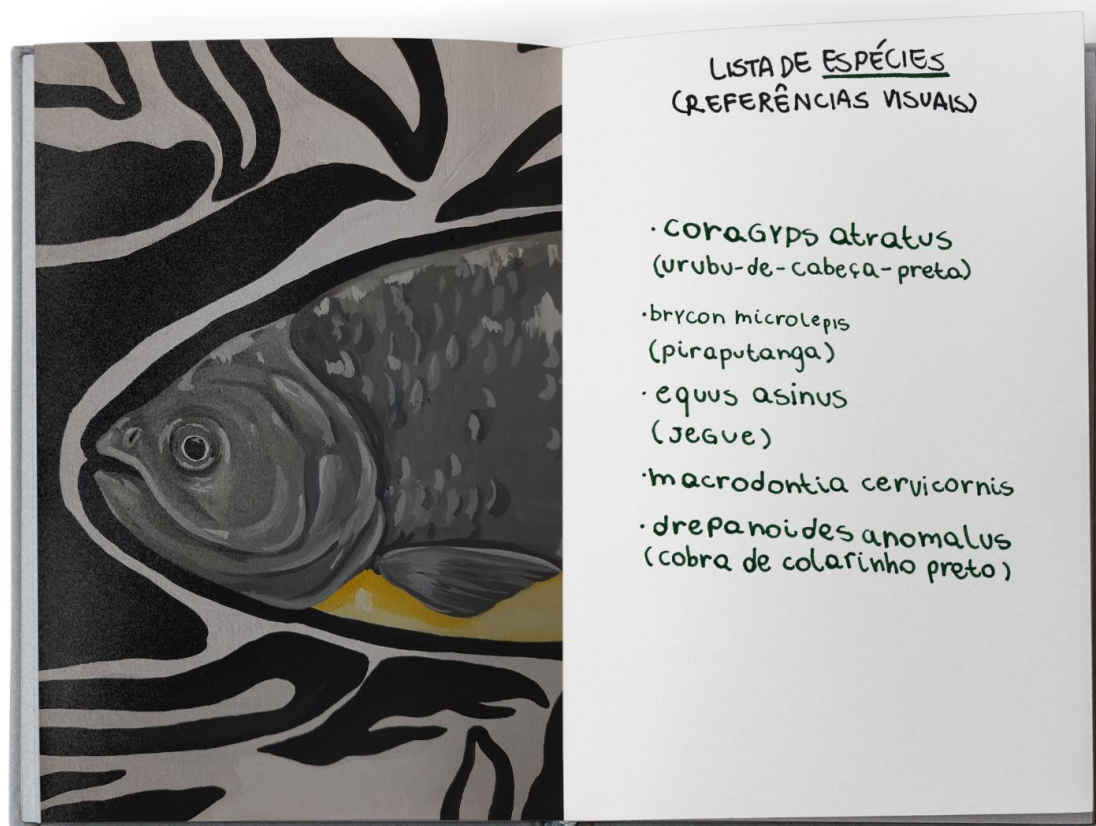 LISTA DE ESPÉCIES
(REFERÊNCIAS VISUAIS)
· coraGYps atratus
(urubu-de-cabeça-preta)
· brycon microlepis
(piraputanga)
· equus asinus
(JEGUE)
· macrodontia cervicornis
· drepanoides anomalus
(cobra de colarinho preto)